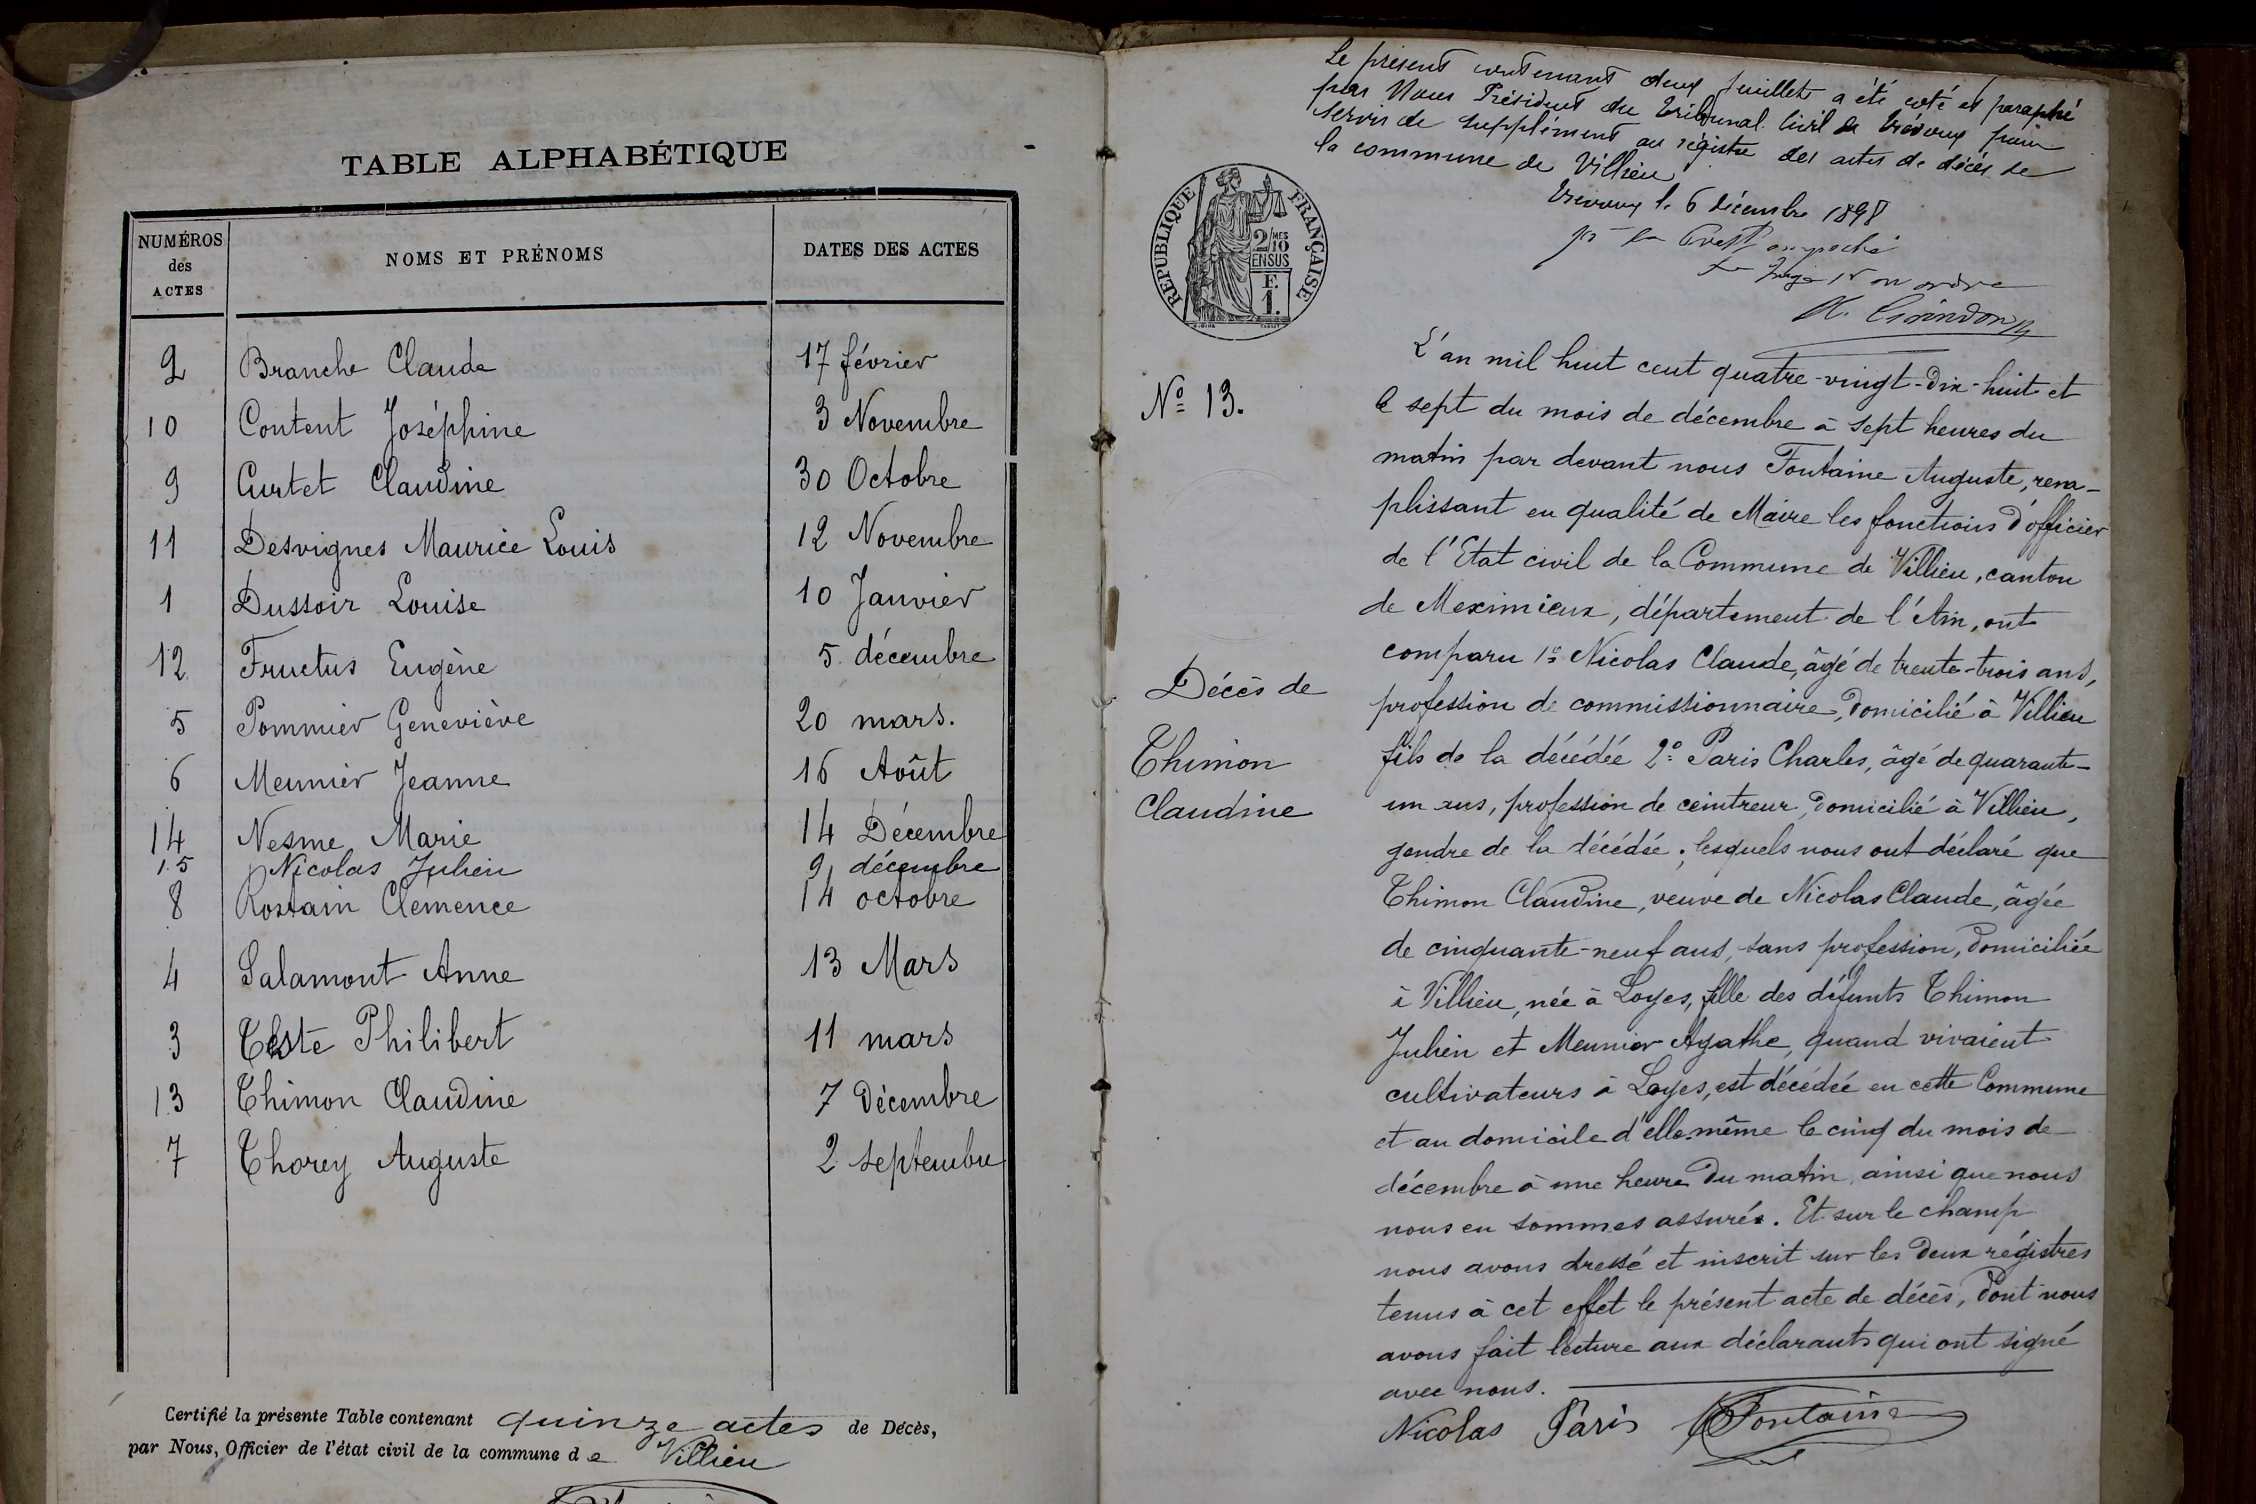 TABLE ALPHABÉTIQUE
NUMÉROS des ACTES | NOMS ET PRÉNOMS | DATES DES ACTES
2 Branche Claude 17 février
10 Content Joséphine 3 Novembre
9 Curtet Claudine 30 Octobre
11 Desvignes Maurice Louis 12 Novembre
1 Dussoir Louise 10 Janvier
12 Fructus Eugène 5 décembre
5 Pommier Geneviève 20 mars.
6 Meunier Jeanne 16 Août
14 Nesme Marie 14 Décembre
15 Nicolas Julien 9 décembre
8 Rostain Clemence 14 octobre
4 Salamont Anne 13 Mars
3 Teste Philibert 11 mars
13 Thimon Claudine 7 Décembre
7 Thorey Auguste 2 septembre
Certifié la présente Table contenant quinze actes de Décès,
par Nous, Officier de l'état civil de la commune de Villieu
Le présent contenant deux feuillets a été coté et paraphé
par Nous Président du Tribunal Civil de Trévoux pour
servir de supplément au régistre des actes de décés de
la commune de Villieu
Trevoux le 6 décembre 1898
pr le Prest empeché
RÉPUBLIQUE FRANÇAISE
2/10 MES
EN SUS
F.
1.
No 13.
L'an mil huit cent quatre-vingt-dix-huit et
le sept du mois de décembre à sept heures du
matin par devant nous Fontaine Auguste, rem-
plissant en qualité de Maire les fonctions d'officier
de l'Etat civil de la Commune de Villieu, canton
de Meximieux, département de l'Ain, ont
comparu 1o Nicolas Claude, âgé de trente-trois ans,
profession de commissionnaire, domicilié à Villieu
fils de la décédée 2o Paris Charles, âgé de quarante-
un ans, profession de ceintreur, domicilié à Villieu,
gendre de la décédée; lesquels nous ont déclaré que
Thimon Claudine, veuve de Nicolas Claude, âgée
de cinquante-neuf ans, sans profession, domiciliée
à Villieu, née à Loyes, fille des défunts Thimon
Julien et Meunier Agathe, quand vivaient
cultivateurs à Loyes, est décédée en cette Commune
et au domicile d'elle-même le cinq du mois de
décembre à une heure du matin, ainsi que nous
nous en sommes assurés. Et sur le champ
nous avons dressé et inscrit sur les deux régistres
tenus à cet effet le présent acte de décès, dont nous
avons fait lecture aux déclarants qui ont signé
avec nous.
Décès de
Thimon
Claudine
Nicolas Paris Fontaine